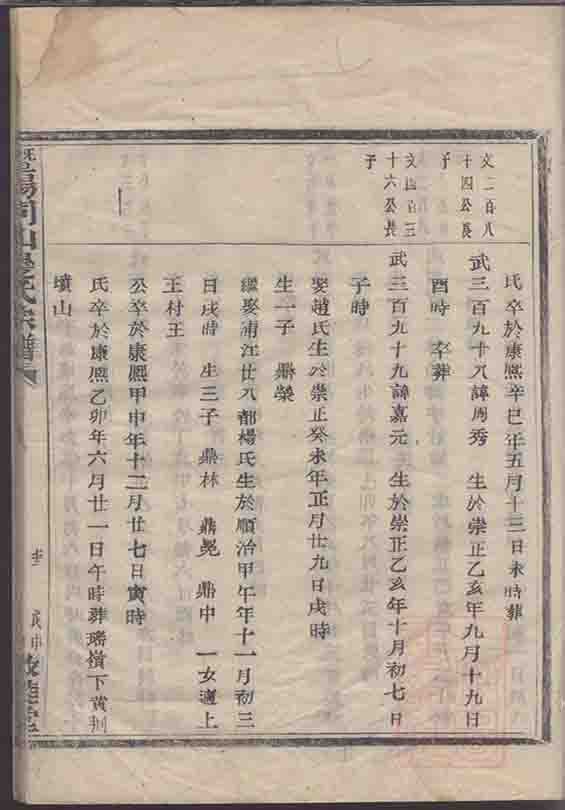 氏卒於康熙辛巳年五月十三日未時葬
文二百八
十四公長
子
武三百九十八諱周秀 生於崇正乙亥年九月十九日
酉時 卒葬
文四百三
十六公長
子
武三百九十九諱嘉元 生於崇正乙亥年十月初七日
子時
娶趙氏生於崇正癸未年正月廿九日戌時
生一子 鼎榮
繼娶浦江廿八都楊氏生於順治甲午年十一月初三
日戌時 生三子 鼎林 鼎晃 鼎中 一女適上
王村王
公卒於康熙甲申年十二月廿七日寅時
氏卒於康熙乙卯年六月廿一日午時葬瑤嶺下黃荆
墳山
暨陽同山邊氏宗譜
戊申
敦睦堂